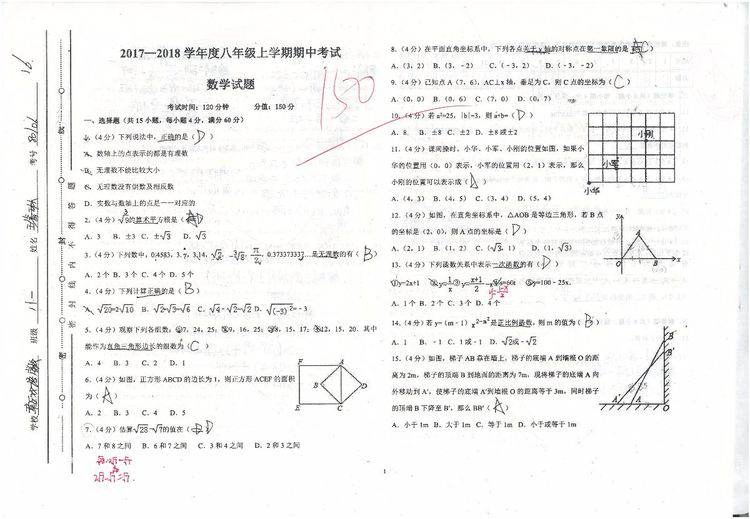 2017—2018 学年度八年级上学期期中考试
数学试题
考试时间：120分钟 分值：150分
150
一、选择题（共15小题，每小题4分，满分60分）
1.（4分）下列说法中，正确的是（D）
A、数轴上的点表示的都是有理数
B、无理数不能比较大小
C、无理数没有倒数及相反数
D、实数与数轴上的点是一一对应的
2.（4分）√9的算术平方根是（D）
A. 3 B. ±3 C. ±√3 D. √3
3.（4分）下列数中，0.4583，3.7，3.14，√2，-∛8，π/2，0.373373337…是无理数的有（B）
A. 2个 B. 3个 C. 4个 D. 5个
4.（4分）下列计算正确的是（B）
A. √20=2√10 B. √2×√3=√6 C. √4-√2=√2 D. √(-3)²=-3
5.（4分）观察下列各组数：①7，24，25；②9，16，25；③8，15，17；④12，15，20．其中
能作为直角三角形边长的组数为（C）
A. 4 B. 3 C. 2 D. 1
6.（4分）如图，正方形ABCD的边长为1，则正方形ACEF的面积
为（A）
A. 2 B. 3 C. 4 D. 5
F A B D E C
7.（4分）估算√28-√7的值在（D）
A. 7和8之间 B. 6和7之间 C. 3和4之间 D. 2和3之间
√28=2√7-√7
2√7-√7=√7
8.（4分）在平面直角坐标系中，下列各点关于y轴的对称点在第一象限的是（C）
A.（3，2） B.（3，-2） C.（-3，2） D.（-3，-2）
9.（4分）已知点A（7，6），AC⊥x轴，垂足为C，则C点的坐标为（C）
A.（0，0） B.（0，6） C.（7，0） D.（0，7）
10.（4分）若a²=25，|b|=3，则a+b=（D）
A. 8 B. ±8 C. ±2 D. ±8或±2
11.（4分）课间操时，小华、小军、小刚的位置如图，如果小
华的位置用（0，0）表示，小军的位置用（2，1）表示，那么
小刚的位置可以表示成（A）
A.（4，3） B.（4，5） C.（3，4） D.（5，4）
小刚
小军
小华
12.（4分）如图，在直角坐标系中，△AOB是等边三角形，若B点
的坐标是（2，0），则A点的坐标是（D）
A.（2，1） B.（1，2） C.（√3，1） D.（1，√3）
y A O B x
13.（4分）下列函数关系中表示一次函数的有（D）
①y=2x+1 ②y=1/x ③y=(x+1)/2-x ④s=60t ⑤y=100-25x．
A. 1个 B. 2个 C. 3个 D. 4个
14.（4分）若y=（m-1）x^(2-m²)是正比例函数，则m的值为（B）
A. 1 B. -1 C. 1或-1 D. √2或-√2
15.（4分）如图，梯子AB靠在墙上，梯子的底端A到墙根O的距
离为2m，梯子的顶端B到地面的距离为7m，现将梯子的底端A向
外移动到A′，使梯子的底端A′到墙根O的距离等于3m，同时梯子
的顶端B下降至B′，那么BB′（A）
A. 小于1m B. 大于1m C. 等于1m D. 小于或等于1m
B B′ A′ A O
1
学校
班级 八一
姓名
考号
密 封 线 内 不 得 答 题